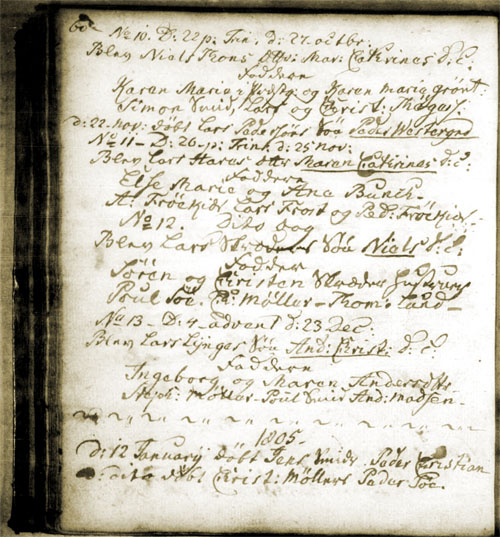 60
No 10. D: 22 p: Trin: d: 27 octbr:
Blev Niels Trons dtts: Mar: Catrinas d: C:
Faddere
Karen Maria og Karen maria Grønt:
Simon Smid, Lars og Christ: Mogus:
d: 22 nov: døbt Lars Padersøns Søn Pader Westergrd
No 11 - D: 26 p: Trin: d: 25 nov:
Blev Lars Harus dtts Maren Catrinas d: C:
Faddere
Else Marie og Ana Bunch-
A: Frøekjds Lars Frost og Pad: Frøekjds-
No 12. Dito dag
Blev Lars Skræders Søn Niels d: C:
Faddere
Søren og Christen Skræders Hustruer
Poul Søe, Møller - Thom: Land-
No 13 - D: 4 - advent d: 23 Dec:
Blev Lars Lynges Søn And: Christ: d: C
Faddere
Ingeborg og Maren Andersdtts
Møller - Poul Smid And: Madsen-
1805-
d: 12 January døbt Jens Smids Pader Christian
dito døbt Christ: Møllers Pader Søe.